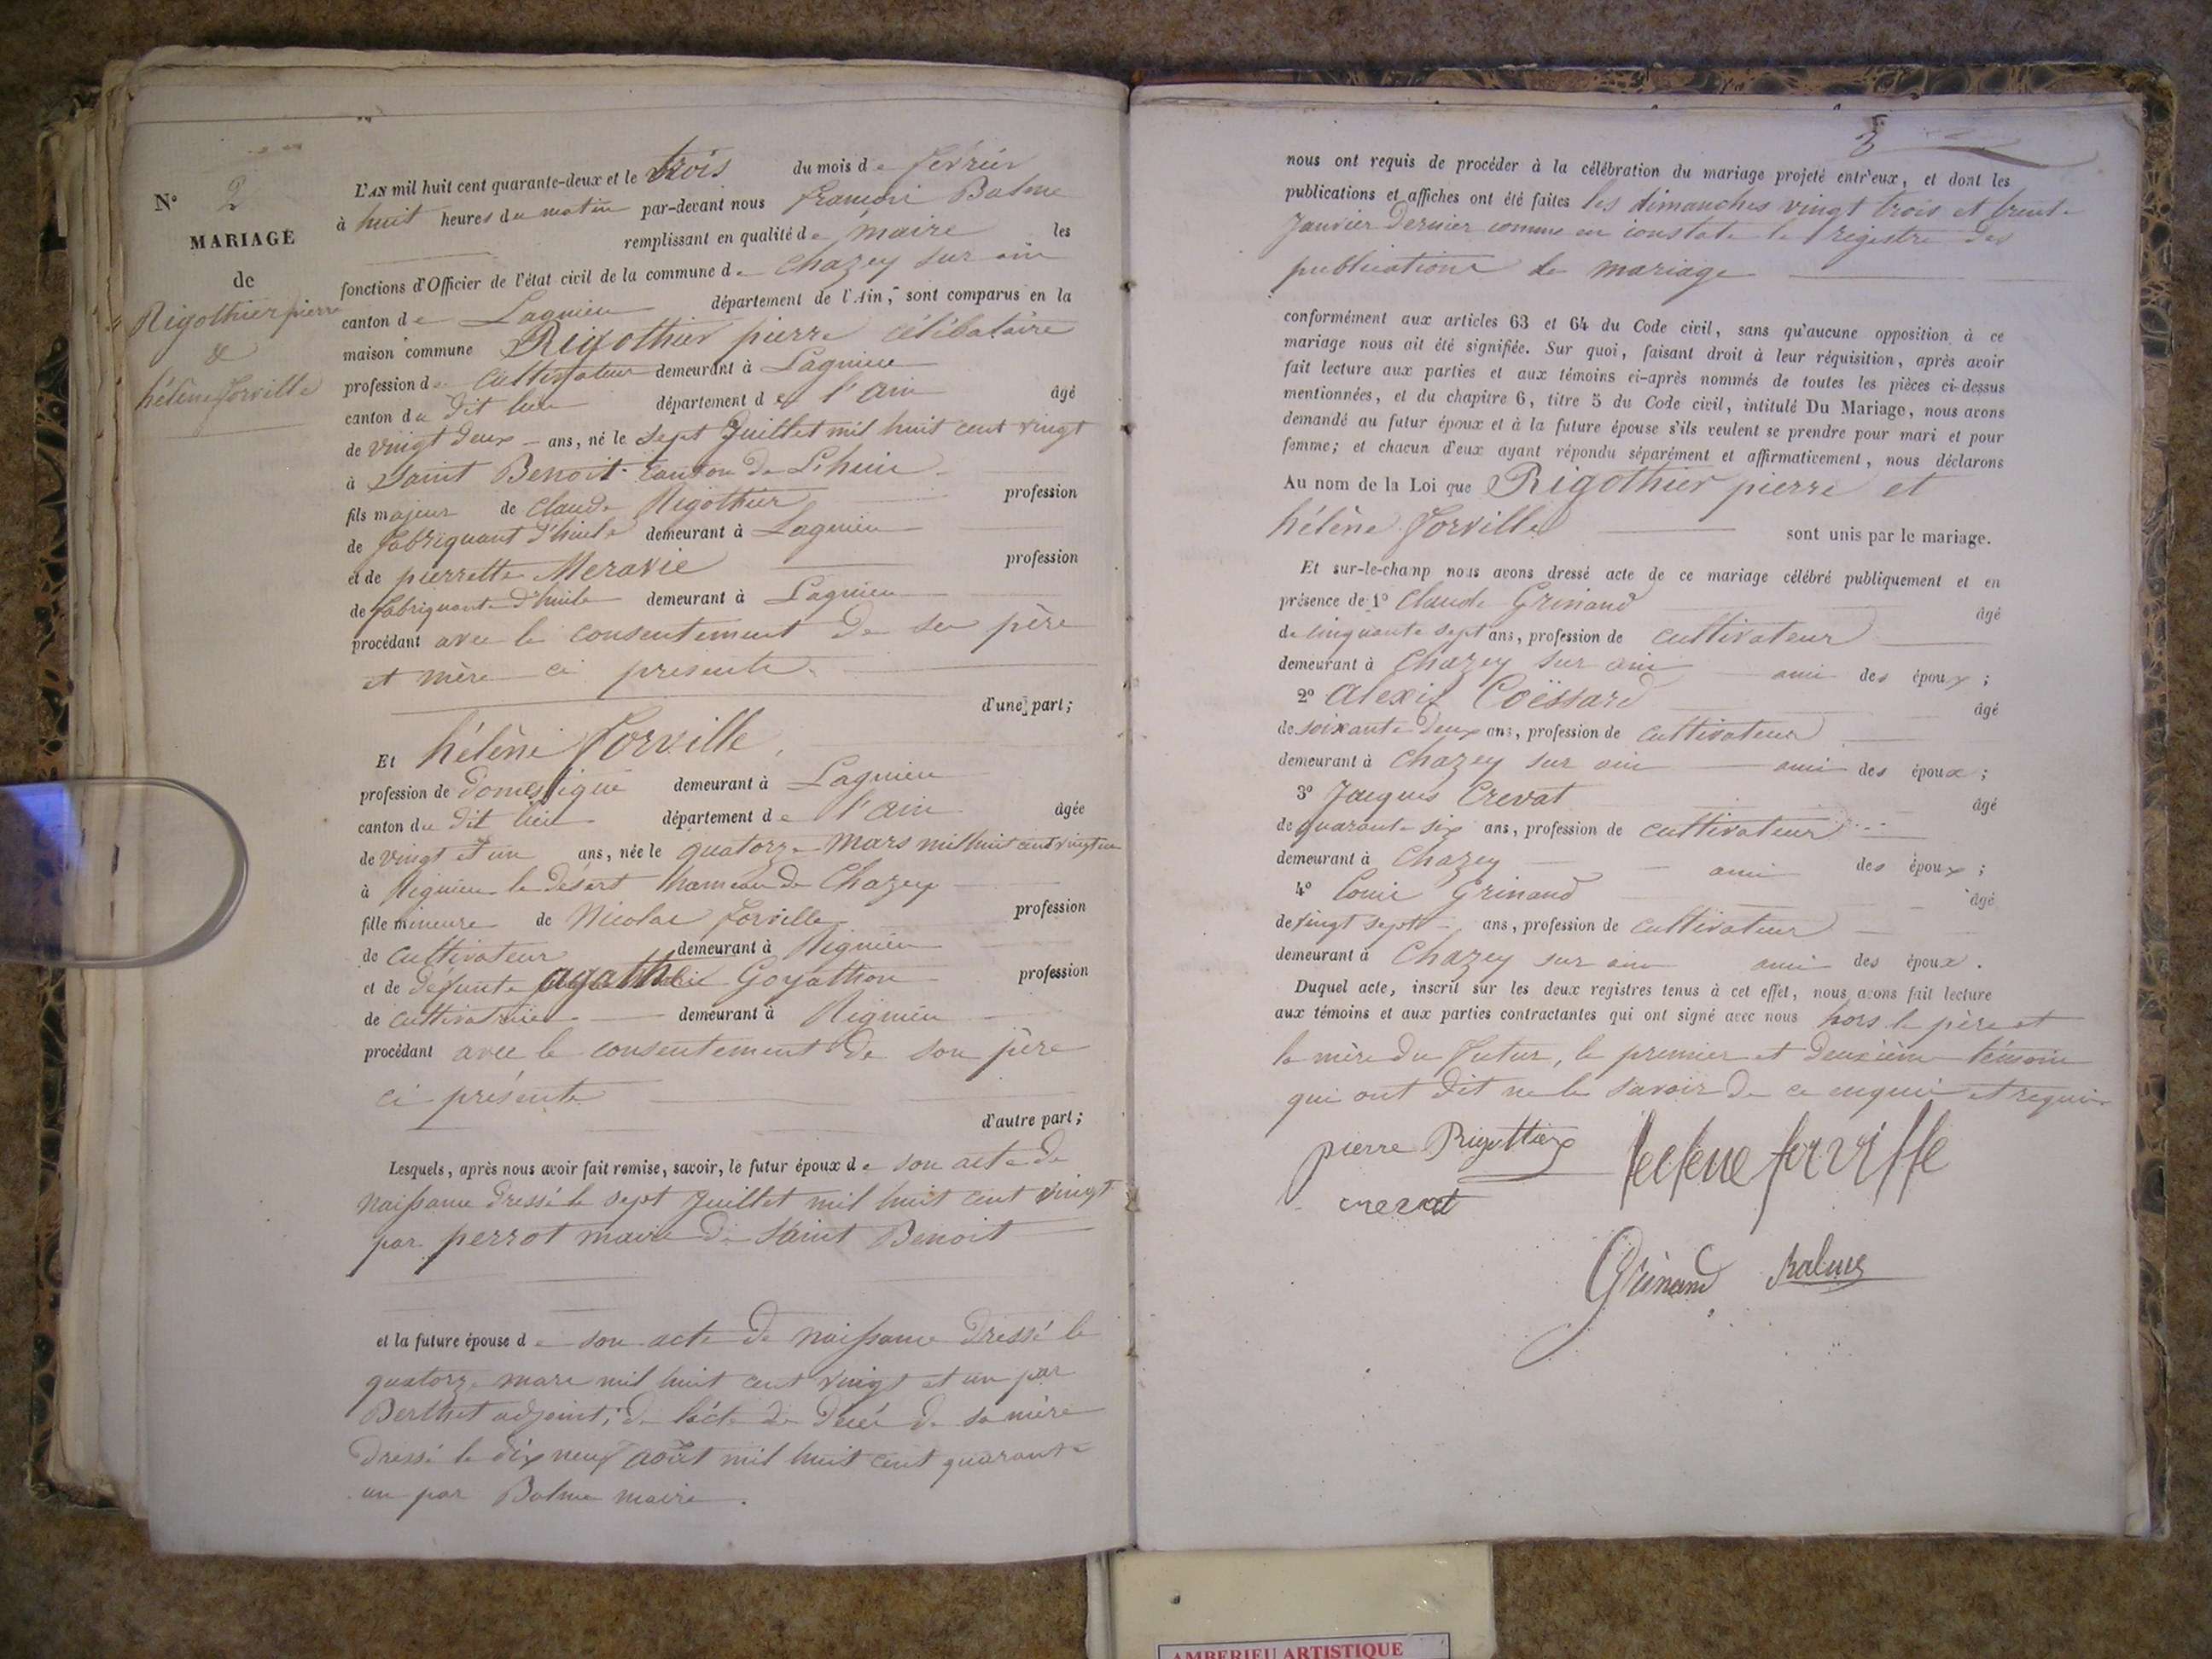 N° 2
MARIAGE
de
Rigotthier pierre
&
hélène forville
L'AN mil huit cent quarante-deux et le trois du mois de février
à huit heures du matin par-devant nous françois Balme
remplissant en qualité de maire les
fonctions d'Officier de l'état civil de la commune de Chazey sur ain
canton de Lagnieu département de l'Ain, sont comparus en la
maison commune Rigotthier pierre célibataire
profession de cultivateur demeurant à Lagnieu
canton du dit lieu département de l'ain âgé
de vingt deux ans, né le sept Juillet mil huit cent vingt
à Saint Benoit canton de Lhuis
fils majeur de Claude Rigotthier profession
de fabriquant d'huile demeurant à Lagnieu
et de pierrette Meravie profession
de fabriquante d'huile demeurant à Lagnieu
procédant avec le consentement de ses père
et mère ci presents
d'une part;
Et hélène forville
profession de domestique demeurant à Lagnieu
canton du dit lieu département de l'ain âgée
de vingt et un ans, née le quatorze mars mil huit cent vingt un
à Rignieu le désert hameau de Chazey
fille mineure de Nicolas forville profession
de cultivateur demeurant à Rignieu
et de défunte agathe Goyatton profession
de cultivatrice demeurant à Rignieu
procédant avec le consentement de son père
ci présente
d'autre part;
Lesquels, après nous avoir fait remise, savoir, le futur époux de son acte de
naissance dressé le sept Juillet mil huit cent vingt
par perrot maire de Saint Benoit
et la future épouse de son acte de naissance dressé le
quatorze mars mil huit cent vingt et un par
Berthet adjoint; de l'acte de décés de sa mère
dressé le dix neuf août mil huit cent quarante
un par Balme maire.
3
nous ont requis de procéder à la célébration du mariage projeté entr'eux, et dont les
publications et affiches ont été faites les dimanches vingt trois et trente
Janvier dernier comme en constate le registre des
publications de mariage
conformément aux articles 63 et 64 du Code civil, sans qu'aucune opposition à ce
mariage nous ait été signifiée. Sur quoi, faisant droit à leur réquisition, après avoir
fait lecture aux parties et aux témoins ci-après nommés de toutes les pièces ci-dessus
mentionnées, et du chapitre 6, titre 5 du Code civil, intitulé Du Mariage, nous avons
demandé au futur époux et à la future épouse s'ils veulent se prendre pour mari et pour
femme; et chacun d'eux ayant répondu séparément et affirmativement, nous déclarons
Au nom de la Loi que Rigotthier pierre et
hélène forville sont unis par le mariage.
Et sur-le-champ nous avons dressé acte de ce mariage célébré publiquement et en
présence de 1° Claude Grinand âgé
de cinquante sept ans, profession de cultivateur
demeurant à Chazey sur ain ami des époux;
2° Alexis Coëssard âgé
de soixante deux ans, profession de cultivateur
demeurant à Chazey sur ain ami des époux;
3° Jacques Crevat âgé
de quarante six ans, profession de cultivateur
demeurant à Chazey ami des époux;
4° Louis Grinand âgé
de vingt sept ans, profession de cultivateur
demeurant à Chazey sur ain ami des époux.
Duquel acte, inscrit sur les deux registres tenus à cet effet, nous avons fait lecture
aux témoins et aux parties contractantes qui ont signé avec nous hors le père et
la mère du futur, le premier et deuxième témoin
qui ont dit ne le savoir de ce enquis et requis
pierre Rigottier helene forville
crevat
Grinand Balme
AMBERIEU ARTISTIQUE